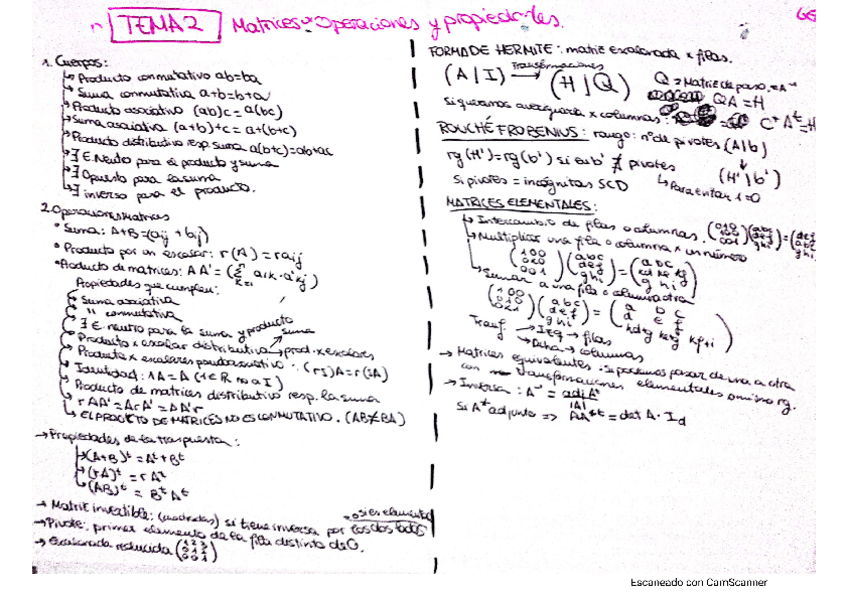 TEMA 2 Matrices: Operaciones y propiedades.
1. Cuerpos:
Producto conmutativo ab=ba
Suma conmutativa a+b=b+a
Producto asociativo (ab)c=a(bc)
Suma asociativa (a+b)+c=a+(b+c)
Producto distributivo resp suma a(b+c)=ab+ac
∃ E.Neutro para el producto y suma
∃ Opuesto para la suma
∃ inverso para el producto.
2. Operaciones Matrices
Suma: A+B=(aij + bij)
Producto por un escalar: r(A)=raij
Producto de matrices: A A' = (Σ aik · a'kj)
Propiedades que cumplen:
Suma asociativa
" conmutativa
∃ E neutro para la suma y producto
Producto x escalar distributivo suma prod. x escalares
Producto x escalares pseudoasociativo: (rs)A=r(sA)
Identidad: 1A=A (1∈R no a I)
Producto de matrices distributivo resp. la suma
rAA'=ArA'=AA'r
EL PRODUCTO DE MATRICES NO ES CONMUTATIVO. (AB≠BA)
→ Propiedades de la traspuesta:
(A+B)ᵗ=Aᵗ+Bᵗ
(rA)ᵗ=rAᵗ
(AB)ᵗ=BᵗAᵗ
→ Matriz invertible: (cuadradas) si tiene inversa por los dos lados
o si es elemental
→ Pivote: primer elemento de la fila distinto de 0.
→ Escalonada reducida
FORMA DE HERMITE: matriz escalonada x filas.
(A | I) Transformaciones → (H | Q) Q = Matriz de paso
QA=H
Si queremos averiguarla x columnas:
ROUCHÉ FROBENIUS: rango: nº de pivotes (A|b)
rg(H')=rg(b') si en b' ∄ pivotes (H'|b')
Si pivotes = incógnitas SCD Para evitar 1=0
MATRICES ELEMENTALES:
Intercambio de filas o columnas.
Multiplicar una fila o columna x un número
Sumar a una fila o columna otra
Transf. → Izq → filas
→ Dcha → columnas
→ Matrices equivalentes: si podemos pasar de una a otra
con transformaciones elementales o mismo rg.
→ Inversa: A⁻¹ = adj Aᵗ / |A|
Si A⁺ adjunto => = det A · Id
Escaneado con CamScanner